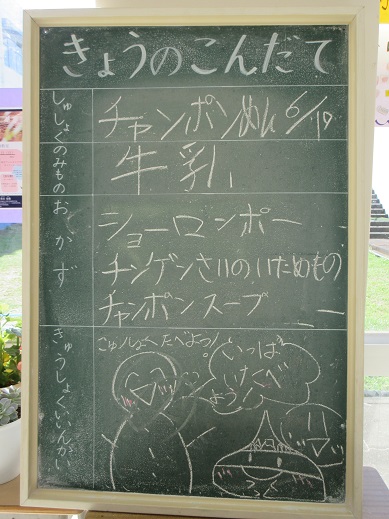 きょうのこんだて
しゅしょく
チャンポンめん 6/19
のみもの
牛乳
おかず
ショーロンポー
チンゲンさいのいためもの
チャンポンスープ
きゅうしょくいいんかい
いっぱ
いたべ
よう!